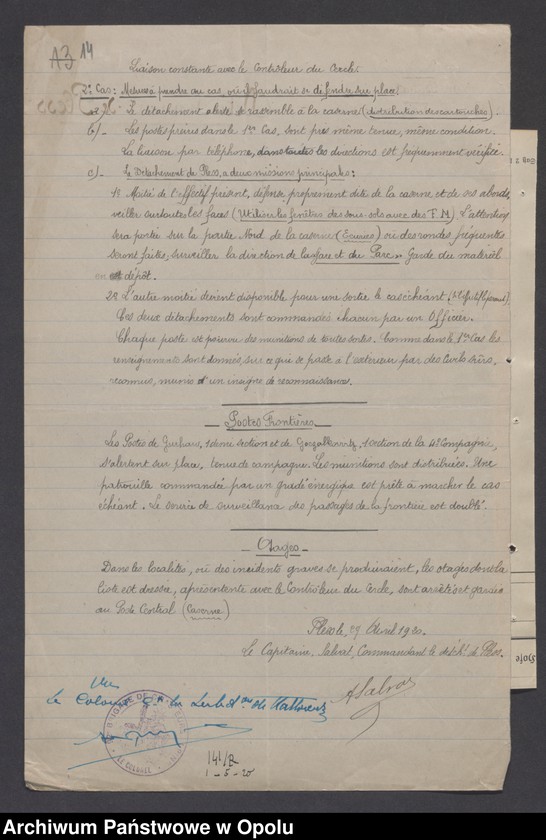 A3 14
Liaison constante avec le Contrôleur du Cercle.
2º Cas: Mesures à prendre au cas où il faudrait se défendre sur place
a)- Le détachement alerté se rassemble à la caserne (distribution des cartouches)
b)- Les postes prévus dans le 1er Cas, sont pris même tenue, même condition.
La liaison par téléphone, dans toutes les directions est fréquemment vérifiée
c)- Le Détachement de Pless, a deux missions principales:
1º Moitié de l'effectif présent, défense proprement dite de la caserne et de ses abords,
veiller sur toutes les faces (Utiliser les fenêtres des sous-sols avec des F.M) L'attention
sera portée sur la partie Nord de la caserne (Ecuries) où des rondes fréquentes
seront faites, surveiller la direction de la Gare et du Parc. Garde du matériel
en dépôt.
2º L'autre moitié devient disponible pour une sortie le cas échéant
Ces deux détachements sont commandés chacun par un Officier.
Chaque poste est pourvu des munitions de toutes sortes. Comme dans le 1er Cas les
renseignements sont donnés, sur ce que se passe à l'extérieur par des Civils sûrs,
reconnus, munis d'un insigne de reconnaissance.
Postes Frontières
Les Postes de 1 demi section et de 1 section de la 4e Compagnie,
s'alertent sur place, tenue de campagne. Les munitions sont distribuées. Une
patrouille commandée par un gradé énergique est prête à marcher le cas
échéant. Le service de surveillance des passages de la frontière est doublé.
Otages
Dans les localités, où des incidents graves se produiraient, les otages dont la
liste est dressée, après entente avec le Contrôleur du Cercle, sont arrêtés et gardés
au Poste Central (Caserne)
Pless le, 29 Avril 1920.
Le Capitaine Commandant le détcht de Pless.
Vu
Le Colonel
LE COLONEL
141/B
1-5-20
Archiwum Państwowe w Opolu